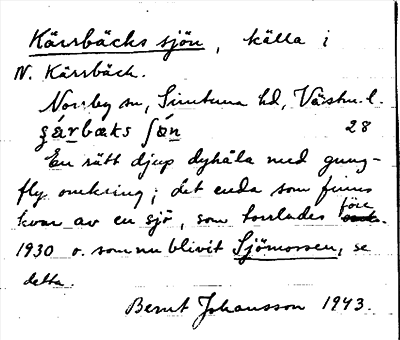 Kärrbäcks sjön, källa i
N. Kärrbäck.
Norrby sn, Simtuna hd, Västm. l.
28
En rätt djup dyhåla med gung-
fly omkring; det enda som finns
kvar av en sjö, som torrlades före
1930 o. som nu blivit Sjömossen, se
detta.
Bernt Johansson 1943.